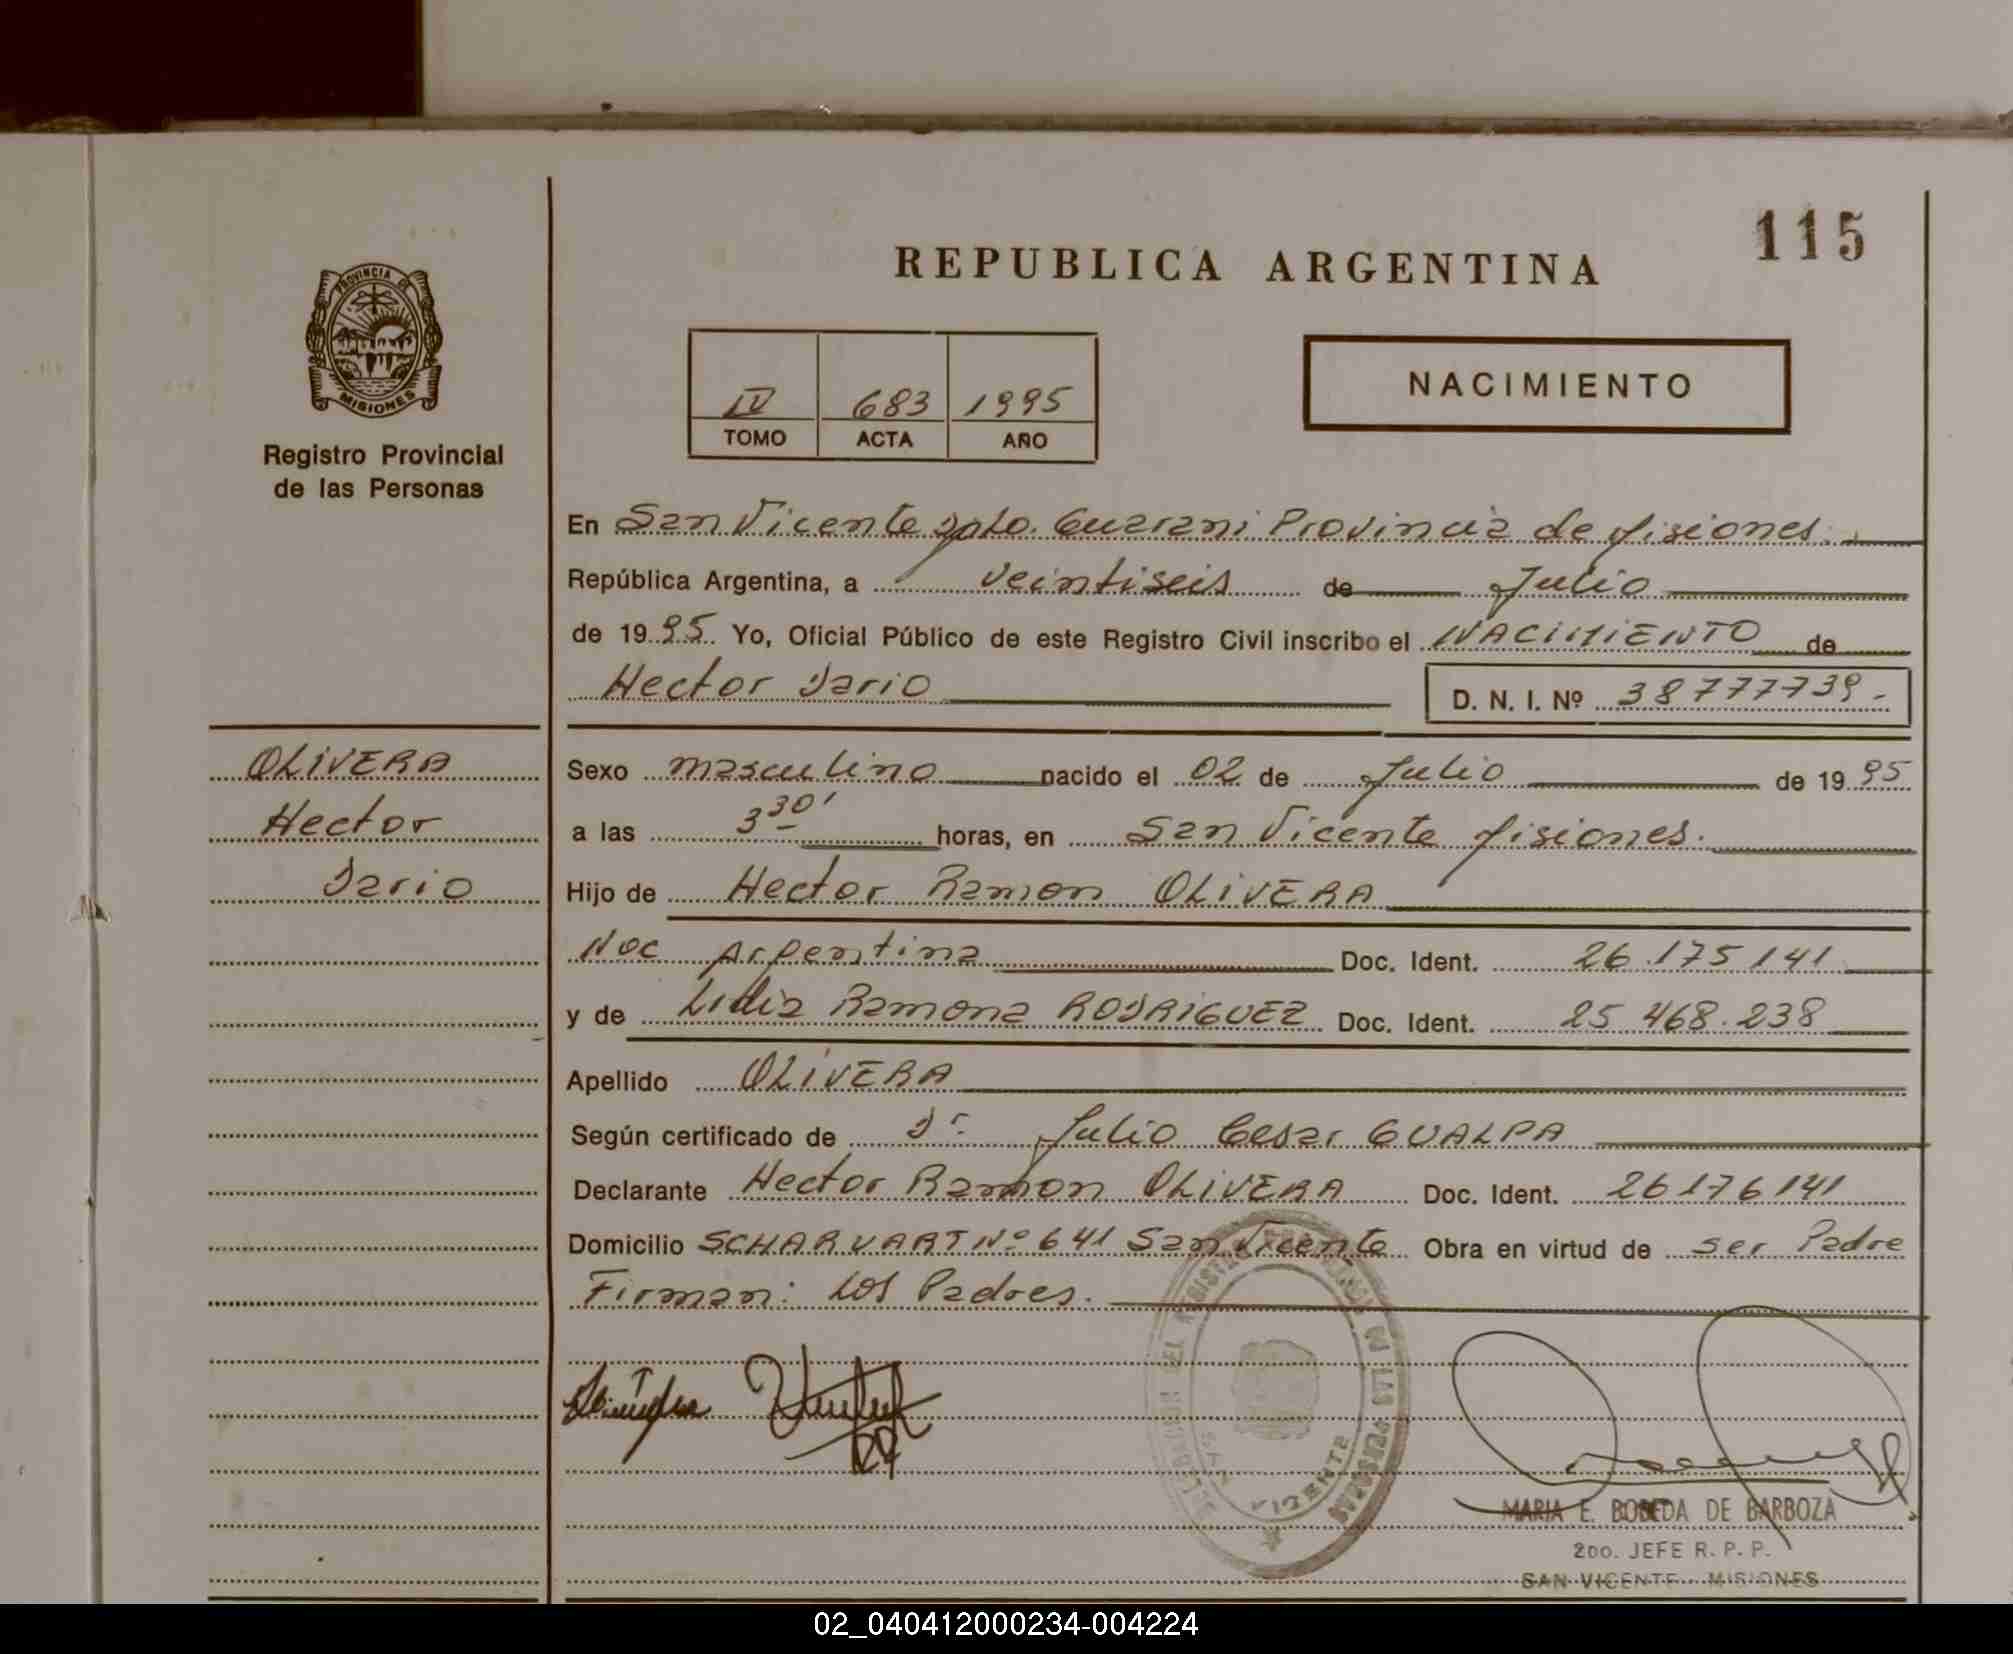 115
REPUBLICA ARGENTINA
PROVINCIA DE
MISIONES
Registro Provincial
de las Personas
IV 683 1995
TOMO ACTA AÑO
NACIMIENTO
En San Vicente Dpto. Guarani Provincia de Misiones.
República Argentina, a veintiseis de Julio
de 1995. Yo, Oficial Público de este Registro Civil inscribo el NACIMIENTO de
Hector Dario D. N. I. Nº 38777739.-
OLIVERA
Hector
Dario
Sexo masculino nacido el 02 de Julio de 1995
a las 3 30' horas, en San Vicente Misiones.
Hijo de Hector Ramon OLIVERA
Nac Argentina Doc. Ident. 26.175141
y de Lidia Ramona RODRIGUEZ Doc. Ident. 25.468.238
Apellido OLIVERA
Según certificado de Dr. Julio Cesar GUALPA
Declarante Hector Ramon OLIVERA Doc. Ident. 26176141
Domicilio SCHARUART Nº 641 San Vicente Obra en virtud de ser Padre
Firman: Los Padres.
DE LAS PERSONAS
VICENTE
MARIA E. BOBEDA DE BARBOZA
2DO. JEFE R. P. P.
SAN VICENTE - MISIONES
02_040412000234-004224